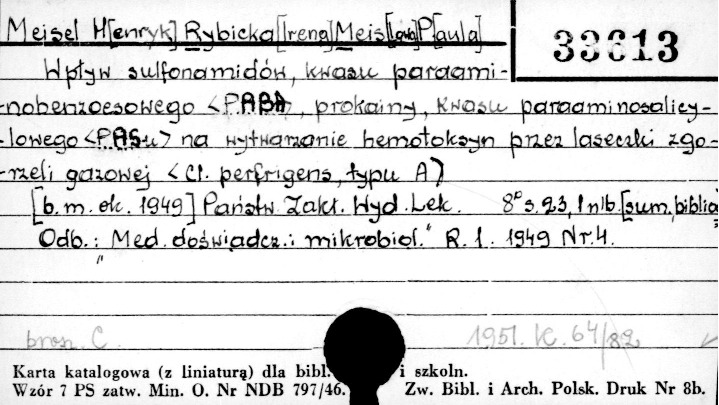 Meisel H[enryk] Rybicka I[rena] Meis[lowa] P[aula]
33613
Wpływ sulfonamidów, kwasu paraami-
-nobenzoesowego <PABA>, prokainy, kwasu paraaminosalicy-
-lowego <PASu> na wytwarzanie hemotoksyn przez laseczki zgo-
-rzeli gazowej <Cl. perfrigens, typu A>
[b.m. ok. 1949] Państw. Zakł. Wyd. Lek. 8° s. 23, 1 nlb. [sum., biblia
Odb.: "Med. doświadcz. i mikrobiol." R. 1. 1949 Nr. 4.
bros. C. 1951. K. 64/82
Karta katalogowa (z liniaturą) dla bibl. i szkoln.
Wzór 7 PS zatw. Min. O. Nr NDB 797/46. Zw. Bibl. i Arch. Polsk. Druk Nr 8b.